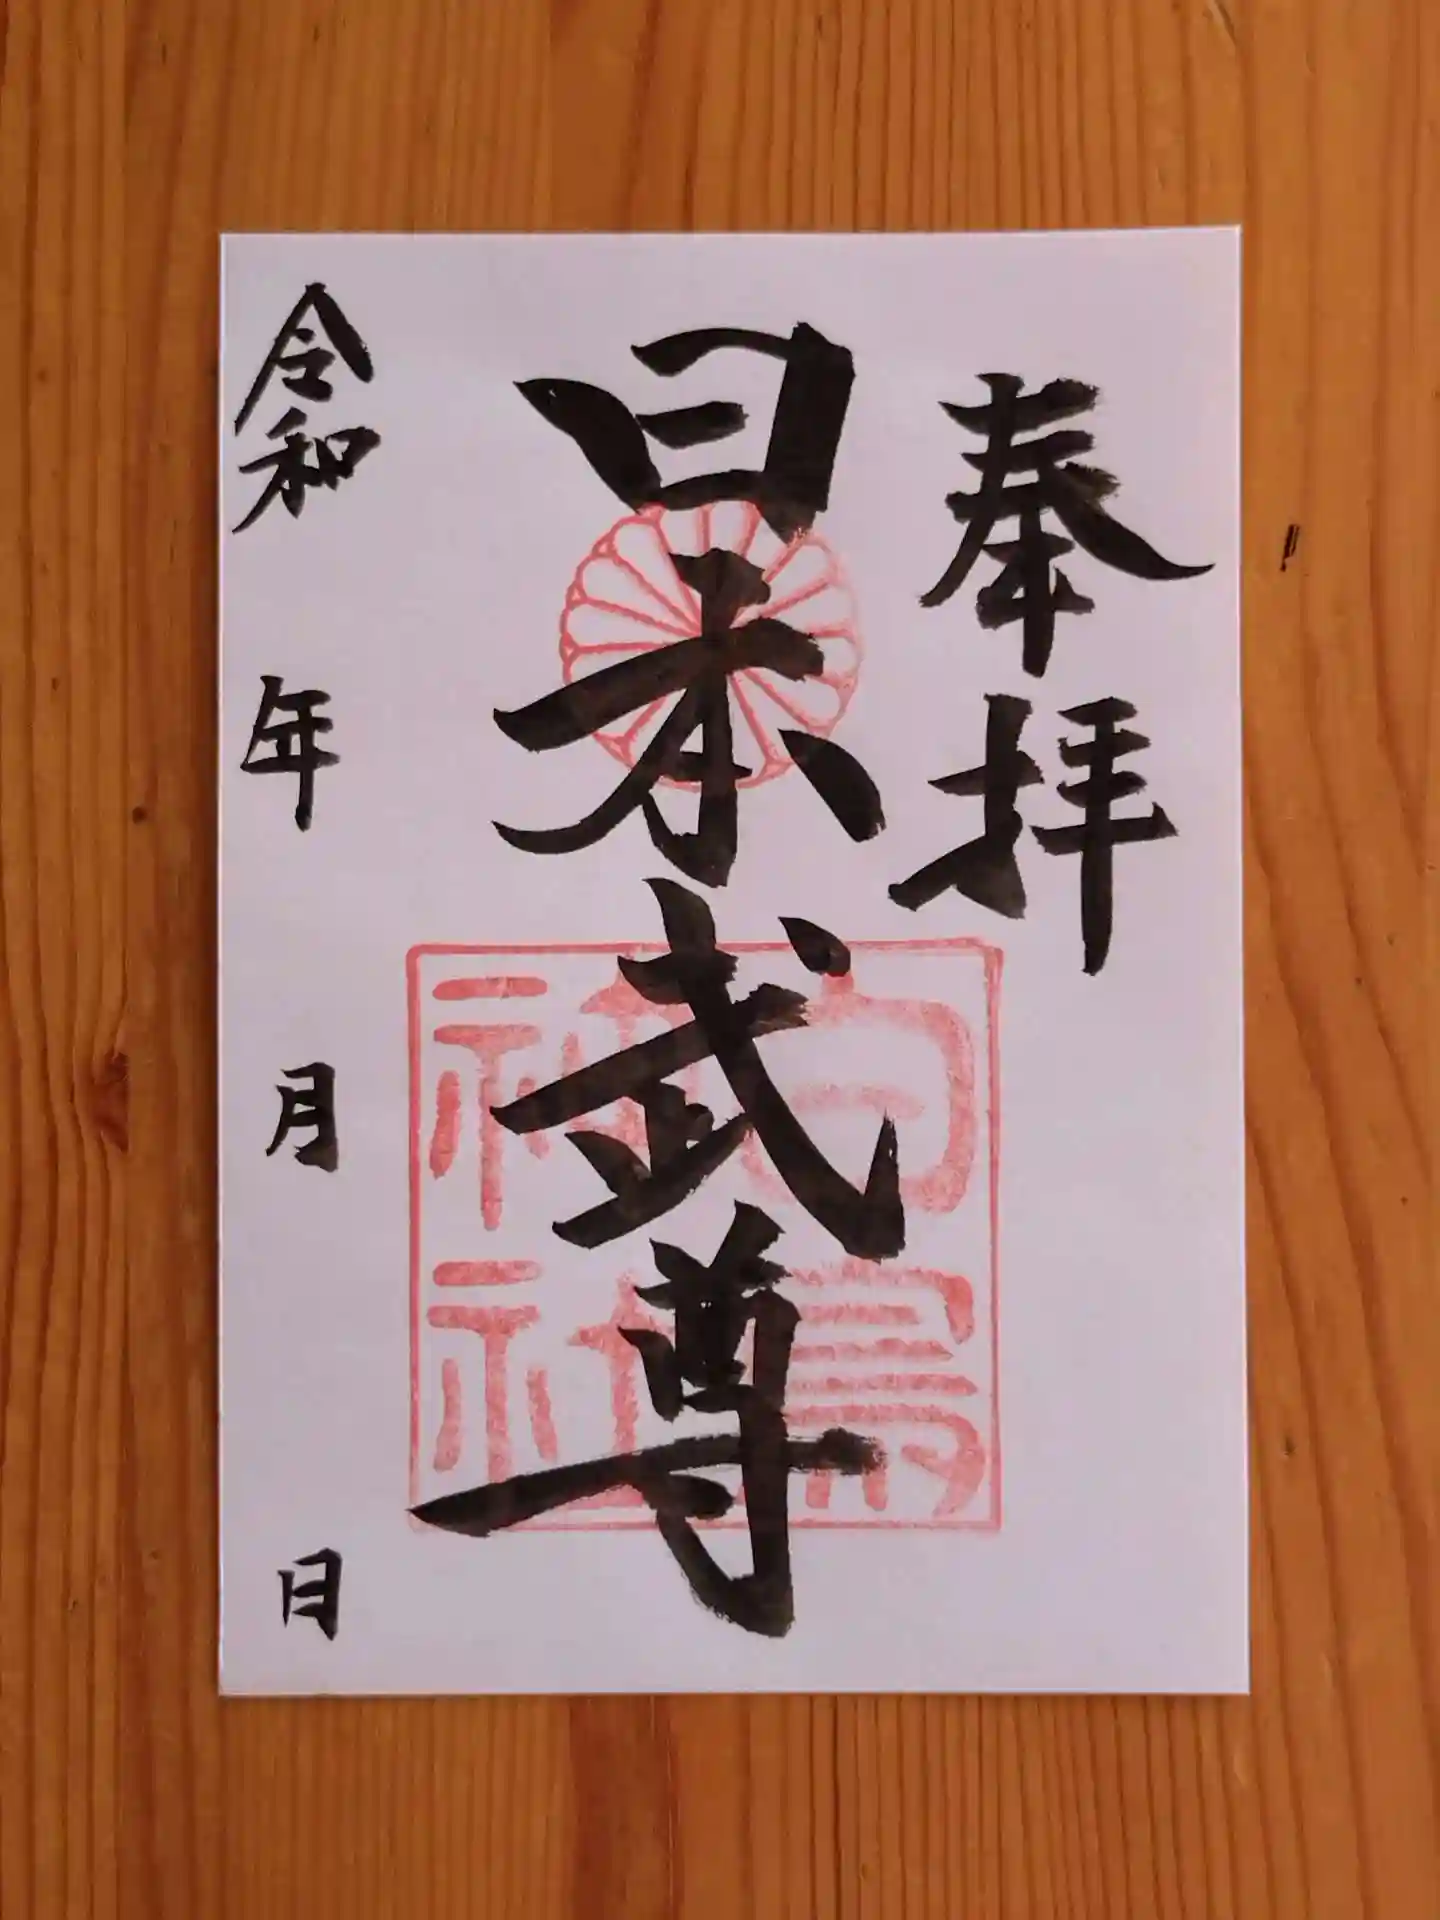 奉拝
日本武尊
白鳥神社
令和 年 月 日